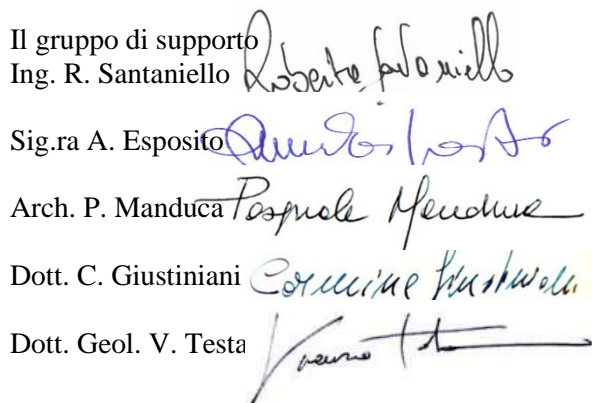 Il gruppo di supporto
Ing. R. Santaniello Roberto Santaniello
Sig.ra A. Esposito
Arch. P. Manduca Pasquale Manduca
Dott. C. Giustiniani Carmine Giustiniani
Dott. Geol. V. Testa